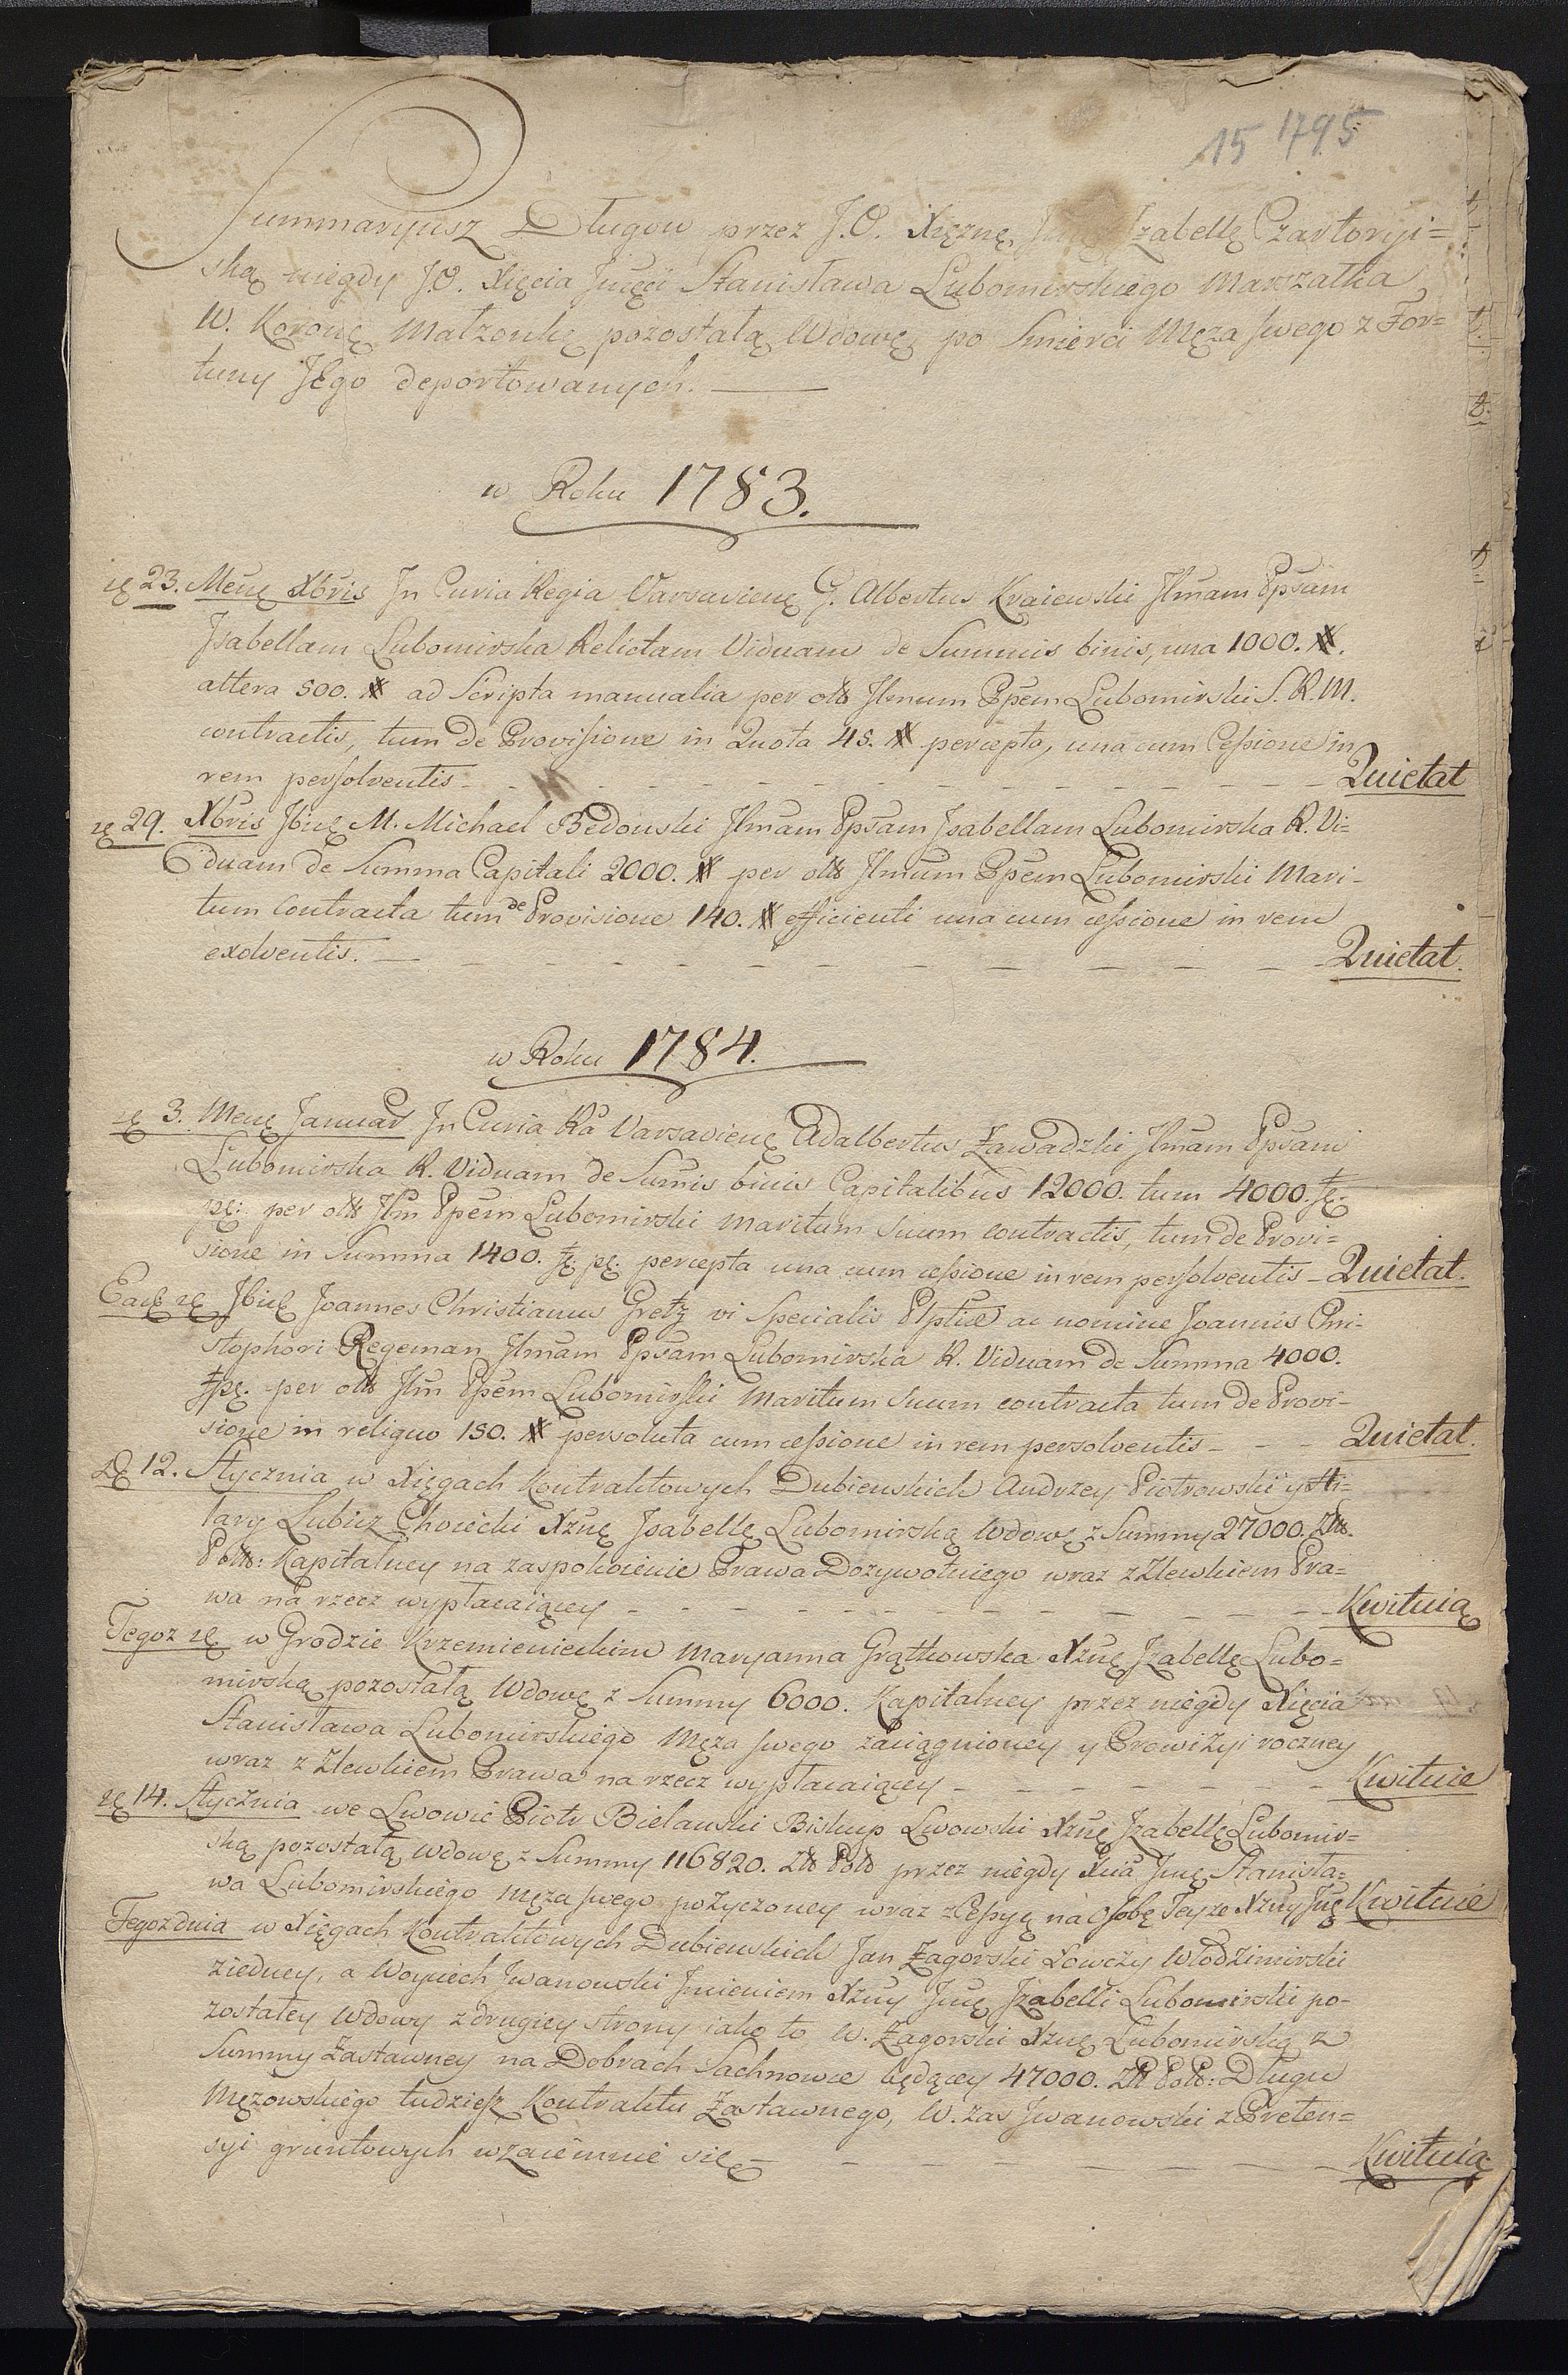 15 1795
Summaryusz Długow przez J.O. Xiężnę Jzabellę Czartoryi=
ską niegdy J.O. Xięcia Jmci Stanisława Lubomirskiego Marszałka
W. Koronę Małzonkę pozostałą Wdowę po Smierci Męza swego z For=
tuny Jego deportowanych.
w Roku 1783.
23. Mensę Xbris Jn Curia Regia Varsavienę G. Albertus Kraiewski Jllmam Ppsam
Jsabellam Lubomirska Relictam Viduam de Summis binis, una 1000. #.
altera 500. # ad Scripta manualia per olb Jllmum Ppem Lubomirski S.R.M.
contractis, tum de Provisione in Quota 45. # percepta, una cum Cessione in
rem persolventis - - - Quietat
29. Xbris Jbidę M. Michael Bedonski Jllmam Ppsam Jsabellam Lubomirska R. Vi-
duam de Summa Capitali 2000. # per olb Jllmum Ppem Lubomirski Mari-
tum contracta tum de Provisione 140. # efficienti una cum cessione in rem
exolventis. - - - Quietat.
w Roku 1784.
3. Mensę Januar Jn Curia Ra Varsavienę Adalbertus Zawadzki Jllmam Ppsam
Lubomirska R. Viduam de Sumis binis Capitalibus 12000. tum 4000. fę.
pę: per olb Jllm Ppem Lubomirski Maritum Suum contractis, tum de Provi=
sione in Summa 1400. fę. pę. percepta una cum cessione in rem persolventis - Quietat.
Eadę Jbidę Joannes Christianus Gretz vi Specialis Plptiæ ac nomine Joannis Chri-
stophori Regeman Jllmam Ppsam Lubomirska R. Viduam de Summa 4000.
fpę. per olb Jllm Ppem Lubomirski Maritum Suum contracta tum de Provi-
sione in reliquo 150. # persoluta cum cessione in rem persolventis - - - Quietat.
12. Stycznia w Xięgach Kontraktowych Dubienskich Andrzey Piotrowski y Hi-
lary Lubicz Chocicki Xznę Jsabellę Lubomirską Wdowę z Summy 27000. Złł.
Poll: Kapitalney na zaspokoienie Prawa Dozywotniego wraz z Zlewkiem Pra=
wa na rzecz wypłacaiącey - - - Kwituią
Tegoz w Grodzie Krzemienieckim Maryanna Grątkowska Xznę Jzabellę Lubo=
mirską pozostałą Wdowę z Summy 6000. Kapitalney przez niegdy Xięcia
Stanisława Lubomirskiego Męza swego zaciągnioney y Prowizyi roczney
wraz z Zlewkiem Prawa na rzecz wypłacaiącey - - - Kwituie
14. Stycznia we Lwowie Piotr Bielanski Biskup Lwowski Xznę Jzabellę Lubomir=
ską pozostałą Wdowę z Summy 116820. Zł Pol przez niegdy Xcia Jmę Stanisła=
wa Lubomirskiego Męza swego pożyczoney wraz z Cessyę na Osobę Teyze Xzny Jmę Kwituie
Tegoz dnia w Xięgach Kontraktowych Dubienskich Jan Zagorski Łowczy Włodzimirski
z iedney, a Woyciech Jwanowski Jmieniem Xzny Jmę Jzabelli Lubomirski po-
zostałey Wdowy z drugiey strony iako to W. Zagorski Xznę Lubomirską z
Summy Zastawney na Dobrach Sachnowce będącey 47000. Zł Pol: Długu
Męzowskiego tudziesz Kontraktu Zastawnego, W. zas Jwanowski z Preten=
syi gruntowych wzaiemnie się - - - Kwituią